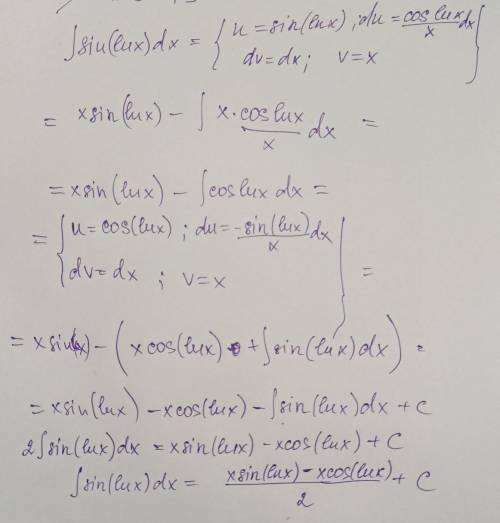 ∫sin(lnx)dx = { u = sin(lnx) ; du = cos lnx / x dx
dv = dx ; v = x }
= x sin(lnx) − ∫ x · cos lnx / x dx =
= x sin(lnx) − ∫cos lnx dx =
= { u = cos(lnx) ; du = −sin(lnx) / x dx
dv = dx ; v = x } =
= x sin(x) − (x cos(lnx) + ∫sin(lnx)dx) =
= x sin(lnx) − x cos(lnx) − ∫sin(lnx)dx + C
2∫sin(lnx)dx = x sin(lnx) − x cos(lnx) + C
∫sin(lnx)dx = x sin(lnx) − x cos(lnx) / 2 + C